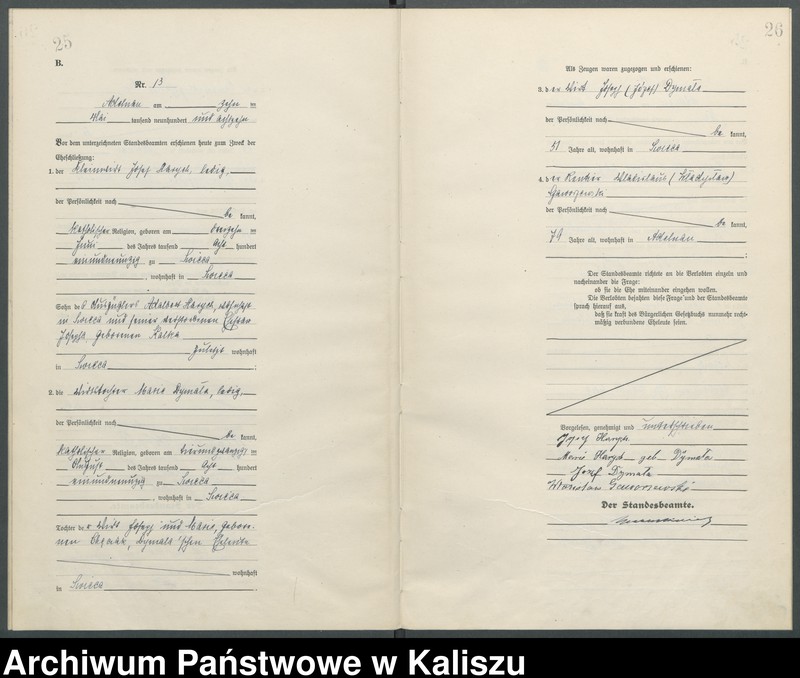 25
B.
Nr. 13
Adelnau am zehn ten
Mai tausend neunhundert und achtzehn
Vor dem unterzeichneten Standesbeamten erschienen heute zum Zweck der
Eheschließung:
1. der Kleinwirt Josef Haryck, ledig,
der Persönlichkeit nach
be kannt,
katholischer Religion, geboren am
des Jahres tausend acht hundert
einundneunzig zu Swieca
, wohnhaft in Swieca
Sohn des Auszüglers Adalbert Haryck, wohnhaft
in Swieca und seiner verstorbenen Ehefrau
Josepha, geborenen
zuletzt wohnhaft
in Swieca ;
2. die Wirtstochter Marie Dymala, ledig,
der Persönlichkeit nach
be kannt,
katholischer Religion, geboren am
August des Jahres tausend acht hundert
einundneunzig zu Swieca
, wohnhaft in Swieca
Tochter der Wirt Josef und Marie, gebore-
nen Dymala'schen Eheleute
wohnhaft
in Swieca .
26
Als Zeugen waren zugezogen und erschienen:
3. der Wirt Joseph (Józef) Dymala
der Persönlichkeit nach
be kannt,
51 Jahre alt, wohnhaft in Swieca
4. der Rentner Wladislaus (Władysław)
der Persönlichkeit nach
be kannt,
79 Jahre alt, wohnhaft in Adelnau
;
Der Standesbeamte richtete an die Verlobten einzeln und
nacheinander die Frage:
ob sie die Ehe miteinander eingehen wollen.
Die Verlobten bejahten diese Frage und der Standesbeamte
sprach hierauf aus,
daß sie kraft des Bürgerlichen Gesetzbuchs nunmehr recht-
mäßig verbundene Eheleute seien.
Vorgelesen, genehmigt und unterschrieben
Josef Haryck
Marie Haryck geb. Dymala
Josef Dymala
Der Standesbeamte.
Archiwum Państwowe w Kaliszu